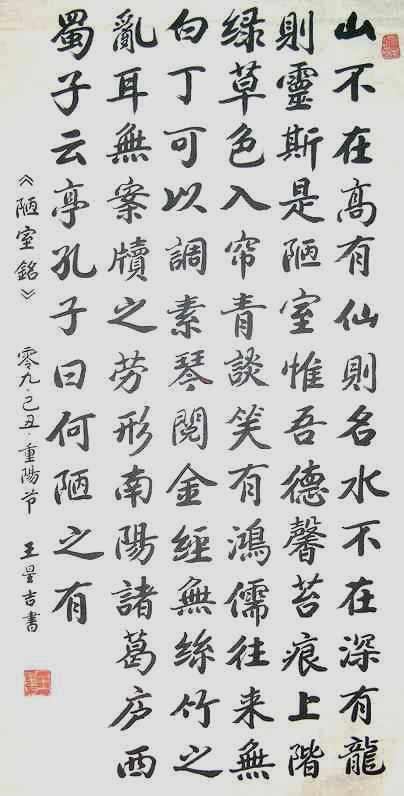 山不在高有仙則名水不在深有龍
則靈斯是陋室惟吾德馨苔痕上階
绿草色入帘青談笑有鴻儒往来無
白丁可以調素琴閱金經無絲竹之
亂耳無案牘之劳形南陽諸葛庐西
蜀子云亭孔子曰何陋之有
《陋室銘》零九·己丑·重陽节 王星吉書